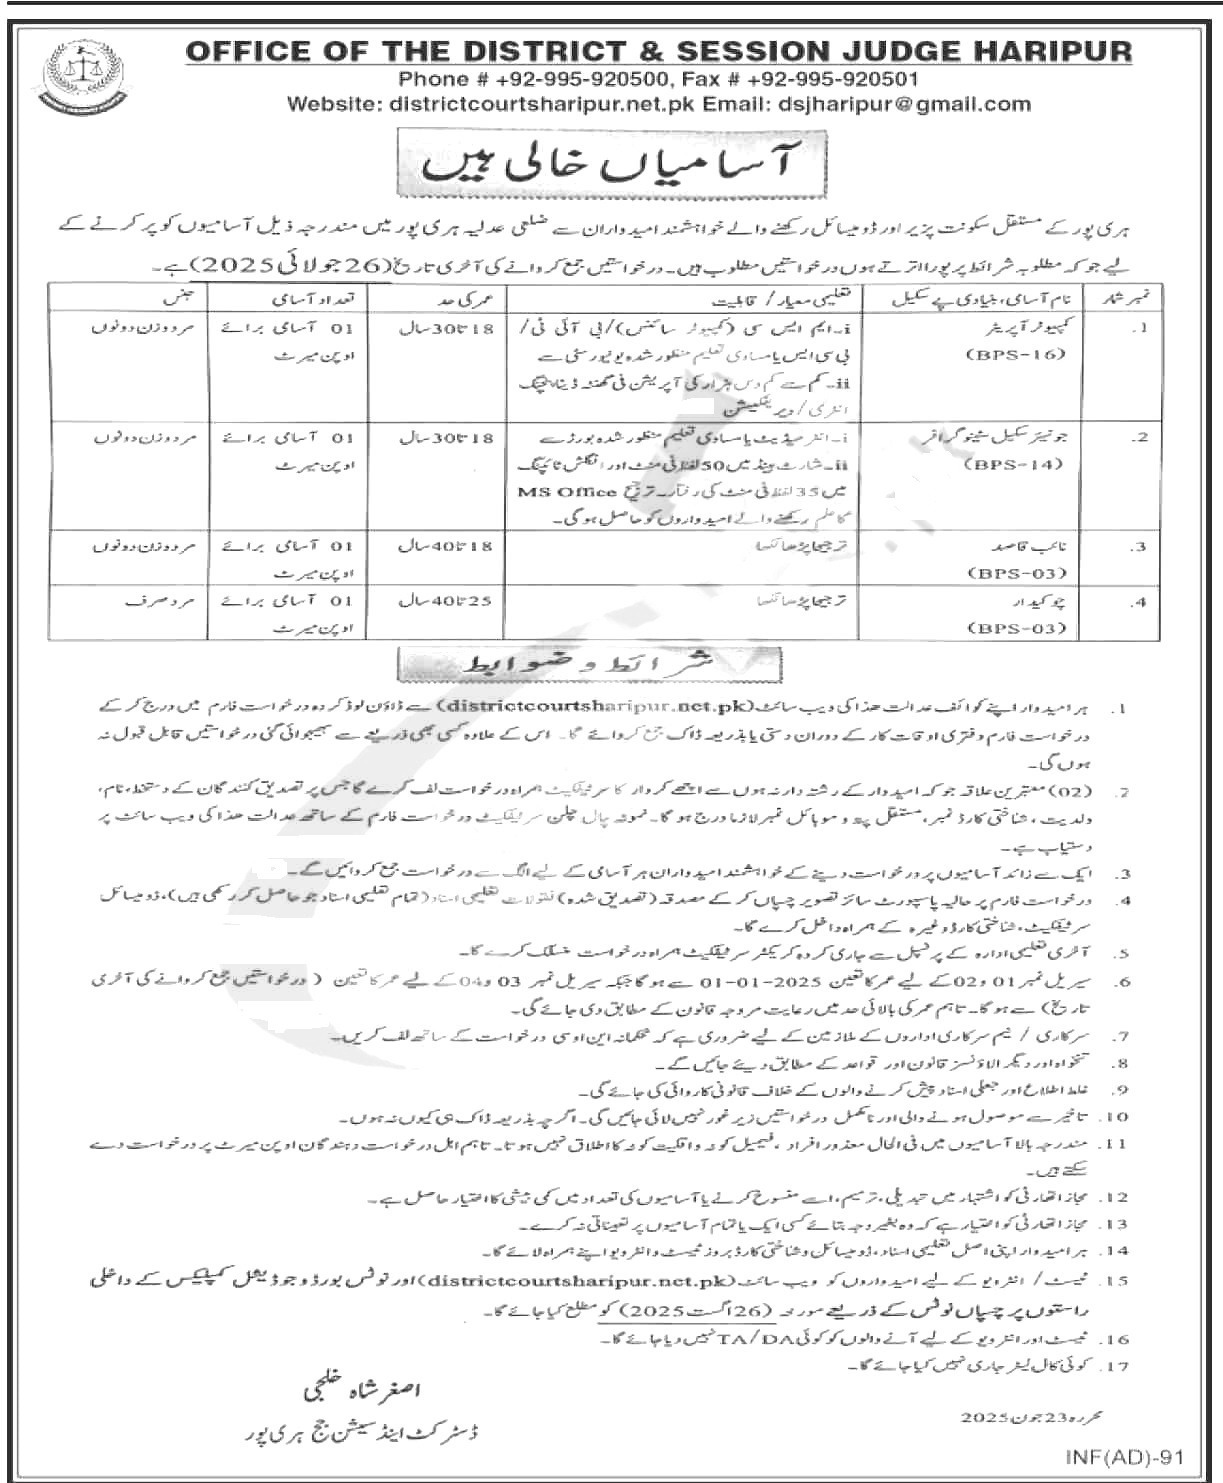 OFFICE OF THE DISTRICT & SESSION JUDGE HARIPUR
Phone # +92-995-920500, Fax # +92-995-920501
Website: districtcourtsharipur.net.pk Email: dsjharipur@gmail.com
آسامیاں خالی ہیں
ہری پور کے مستقل سکونت پزیر اور ڈومیسائل رکھنے والے خواہشمند امیدواران سے ضلعی عدلیہ ہری پور میں مندرجہ ذیل آسامیوں کو پر کرنے کے
لیے جو کہ مطلوبہ شرائط پر پورا اترتے ہوں درخواستیں مطلوب ہیں۔ درخواستیں جمع کروانے کی آخری تاریخ (26 جولائی 2025) ہے۔
نمبر شمار نام آسامی، بنیادی پے سکیل تعلیمی معیار / قابلیت عمر کی حد تعداد آسامی جنس
1. کمپیوٹر آپریٹر i۔ ایم ایس سی (کمپیوٹر سائنس)/بی آئی ٹی/ 18 تا 30 سال 01 آسامی برائے مرد و زن دونوں
(BPS-16) بی سی ایس یا مساوی تعلیم منظور شدہ یونیورسٹی سے اوپن میرٹ
ii۔ کم سے کم دس ہزار کی آپریشن فی گھنٹہ ڈیٹا پنچنگ
انٹری / ویریفکیشن
2. جونیئر سکیل سٹینوگرافر i۔ انٹرمیڈیٹ یا مساوی تعلیم منظور شدہ بورڈ سے 18 تا 30 سال 01 آسامی برائے مرد و زن دونوں
(BPS-14) ii۔ شارٹ ہینڈ میں 50 لفظ فی منٹ اور انگلش ٹائپنگ اوپن میرٹ
میں 35 لفظ فی منٹ کی رفتار۔ ترجیح MS Office
کا علم رکھنے والے امیدواروں کو حاصل ہو گی۔
3. نائب قاصد ترجیحا پڑھا لکھا 18 تا 40 سال 01 آسامی برائے مرد و زن دونوں
(BPS-03) اوپن میرٹ
4. چوکیدار ترجیحا پڑھا لکھا 25 تا 40 سال 01 آسامی برائے مرد صرف
(BPS-03) اوپن میرٹ
شرائط و ضوابط
1. ہر امیدوار اپنے کوائف عدالت ھذا کی ویب سائٹ (districtcourtsharipur.net.pk) سے ڈاؤن لوڈ کردہ درخواست فارم میں درج کر کے
درخواست فارم دفتری اوقات کار کے دوران دستی یا بذریعہ ڈاک جمع کروائے گا۔ اس کے علاوہ کسی بھی ذریعے سے بھیجوائی گئی درخواستیں قابل قبول نہ
ہوں گی۔
2. (02) معتبرین علاقہ جو کہ امیدوار کے رشتہ دار نہ ہوں سے اچھے کردار کا سرٹیفکیٹ ہمراہ درخواست لف کرے گا جس پر تصدیق کنندگان کے دستخط، نام،
ولدیت، شناختی کارڈ نمبر، مستقل پتہ و موبائل نمبر لازما درج ہو گا۔ نمونہ چال چلن سرٹیفکیٹ درخواست فارم کے ساتھ عدالت ھذا کی ویب سائٹ پر
دستیاب ہے۔
3. ایک سے زائد آسامیوں پر درخواست دینے کے خواہشمند امیدواران ہر آسامی کے لیے الگ سے درخواست جمع کروائیں گے۔
4. درخواست فارم پر حالیہ پاسپورٹ سائز تصویر چسپاں کر کے مصدقہ (تصدیق شدہ) نقولات تعلیمی اسناد (تمام تعلیمی اسناد جو حاصل کر رکھی ہیں)، ڈومیسائل
سرٹیفکیٹ، شناختی کارڈ وغیرہ کے ہمراہ داخل کرے گا۔
5. آخری تعلیمی ادارہ کے پرنسپل سے جاری کردہ کریکٹر سرٹیفکیٹ ہمراہ درخواست منسلک کرے گا۔
6. سیریل نمبر 01 و 02 کے لیے عمر کا تعین 2025-01-01 سے ہو گا جبکہ سیریل نمبر 03 و 04 کے لیے عمر کا تعین (درخواستیں جمع کروانے کی آخری
تاریخ) سے ہو گا۔ تاہم عمر کی بالائی حد میں رعایت مروجہ قانون کے مطابق دی جائے گی۔
7. سرکاری / نیم سرکاری اداروں کے ملازمین کے لیے ضروری ہے کہ محکمانہ این او سی درخواست کے ساتھ لف کریں۔
8. تنخواہ اور دیگر الاؤنسز قانون اور قواعد کے مطابق دیئے جائیں گے۔
9. غلط اطلاع اور جعلی اسناد پیش کرنے والوں کے خلاف قانونی کاروائی کی جائے گی۔
10. تاخیر سے موصول ہونے والی اور نامکمل درخواستیں زیر غور نہیں لائی جائیں گی۔ اگرچہ بذریعہ ڈاک ہی کیوں نہ ہوں۔
11. مندرجہ بالا آسامیوں میں فی الحال معذور افراد، فیمیل کوٹہ و اقلیت کوٹہ کا اطلاق نہیں ہوتا۔ تاہم اہل درخواست دہندگان اوپن میرٹ پر درخواست دے
سکتے ہیں۔
12. مجاز اتھارٹی کو اشتہار میں تبدیلی، ترمیم، اسے منسوخ کرنے یا آسامیوں کی تعداد میں کمی بیشی کا اختیار حاصل ہے۔
13. مجاز اتھارٹی کو اختیار ہے کہ وہ بغیر وجہ بتائے کسی ایک یا تمام آسامیوں پر تعیناتی نہ کرے۔
14. ہر امیدوار اپنی اصل تعلیمی اسناد، ڈومیسائل و شناختی کارڈ بروز ٹیسٹ و انٹرویو اپنے ہمراہ لائے گا۔
15. ٹیسٹ / انٹرویو کے لیے امیدواروں کو ویب سائٹ (districtcourtsharipur.net.pk) اور نوٹس بورڈ و جوڈیشل کمپلیکس کے داخلی
راستوں پر چسپاں نوٹس کے ذریعے مورخہ (26 اگست 2025) کو مطلع کیا جائے گا۔
16. ٹیسٹ اور انٹرویو کے لیے آنے والوں کو کوئی TA/DA نہیں دیا جائے گا۔
17. کوئی کال لیٹر جاری نہیں کیا جائے گا۔
اصغر شاہ خلجی
ڈسٹرکٹ اینڈ سیشن جج ہری پور
محررہ 23 جون 2025
INF(AD)-91